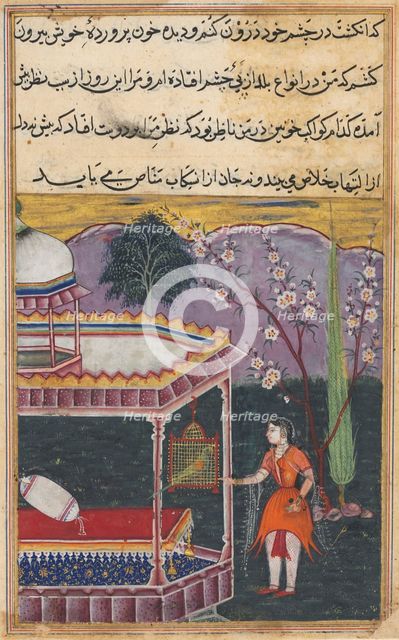 کدانکشت در چشم خود درون کنم و دیده خون پروردهٔ خویش بیرون
کشم که من در انواع بلا از پی چشم افتاده ام و مرا این روز از سبب نظر پیش
آمده کدام کواکب خونین در من ناظر بود که نظر من بر دوست افتاد که بیش نه دل
از التهاب خلاص می بیند و نه جان از ارتکاب مناص می یابد
Heritage
Heritage
Heritage
Heritage
Heritage
Heritage
Heritage
Heritage